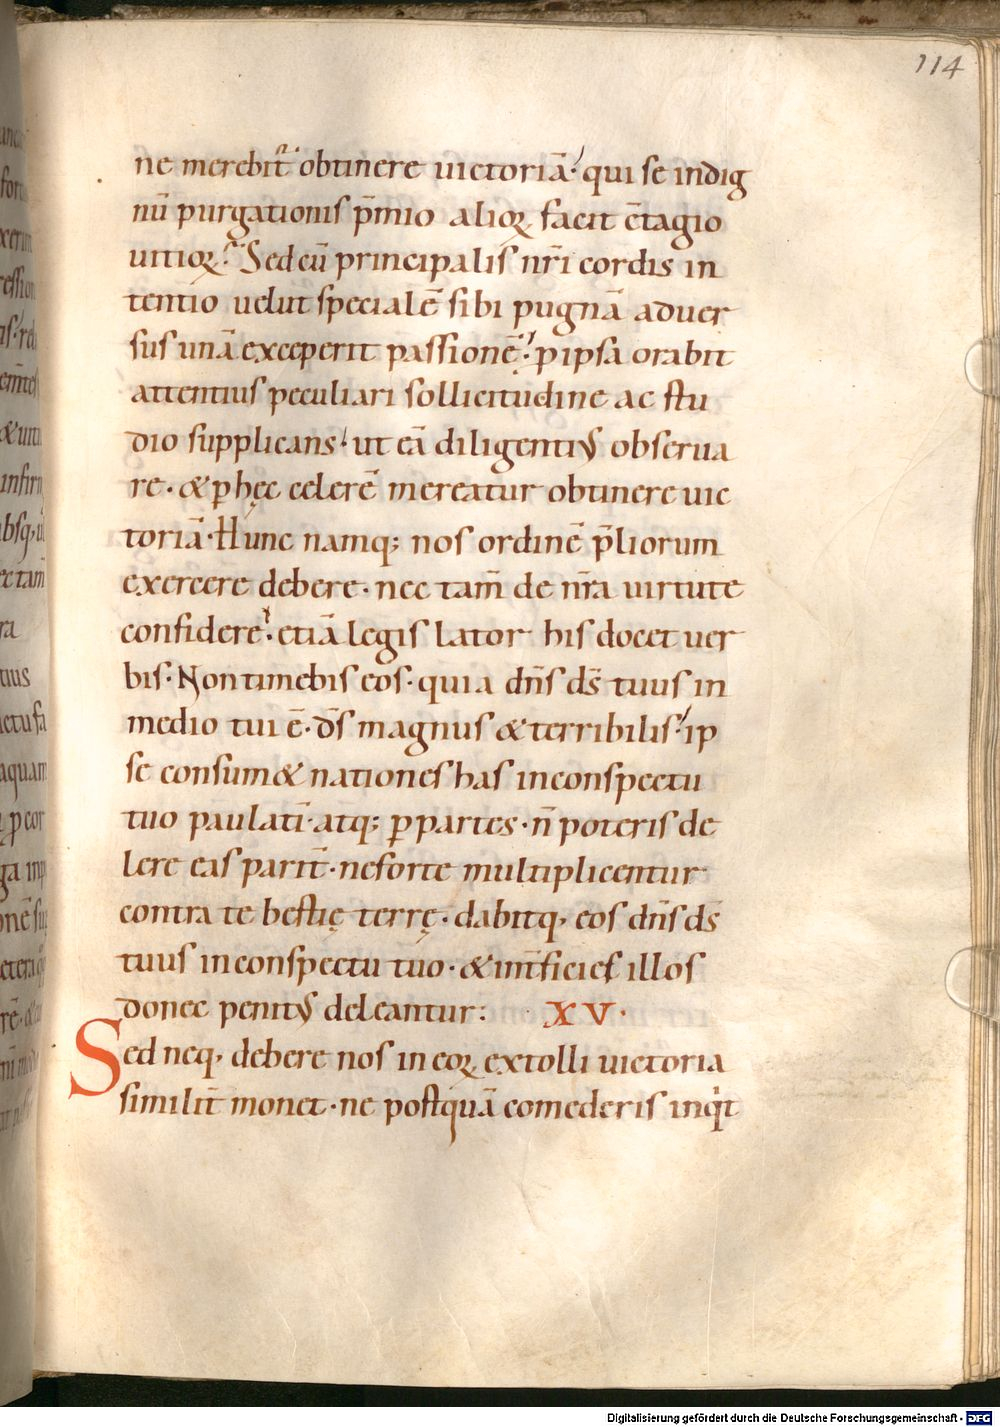 114
ne merebit᷑ obtinere uictoriā· qui se indig
nū purgationis p̄mio alioꝝ facit c̄tagio
uitioꝝ· Sed cū principalis nr̄i cordis in
tentio uelut specialē sibi pugnā aduer
sus unā exceperit passionē· ꝓ ipsa orabit
attentius peculiari sollicitudine ac stu
dio supplicans· ut eā diligentiꝰ obserua
re· & ꝑ hęc celerē mereatur obtinere uic
toriā· Hunc namq; nos ordinē p̄liorum
exercere debere· nec tam̄ de nr̄a uirtute
confidere· etiā legis lator his docet uer
bis· Non timebis eos· quia dn̄s ds̄ tuus in
medio tui ē· ds̄ magnus & terribilis· ip
se consum& nationes has in conspectu
tuo paulatī· atq; ꝑ partes· n̄ poteris de
lere eas parit̄· ne forte multiplicentur
contra te bestię terrę· dabitq, eos dn̄s ds̄
tuus in conspectu tuo· & int̄ficies illos
donec penitꝰ deleantur: XV·
Sed neq, debere nos in eoꝝ extolli uictoria
similit̄ monet· ne postquā comederis inq̇t
Digitalisierung gefördert durch die Deutsche Forschungsgemeinschaft - DFG